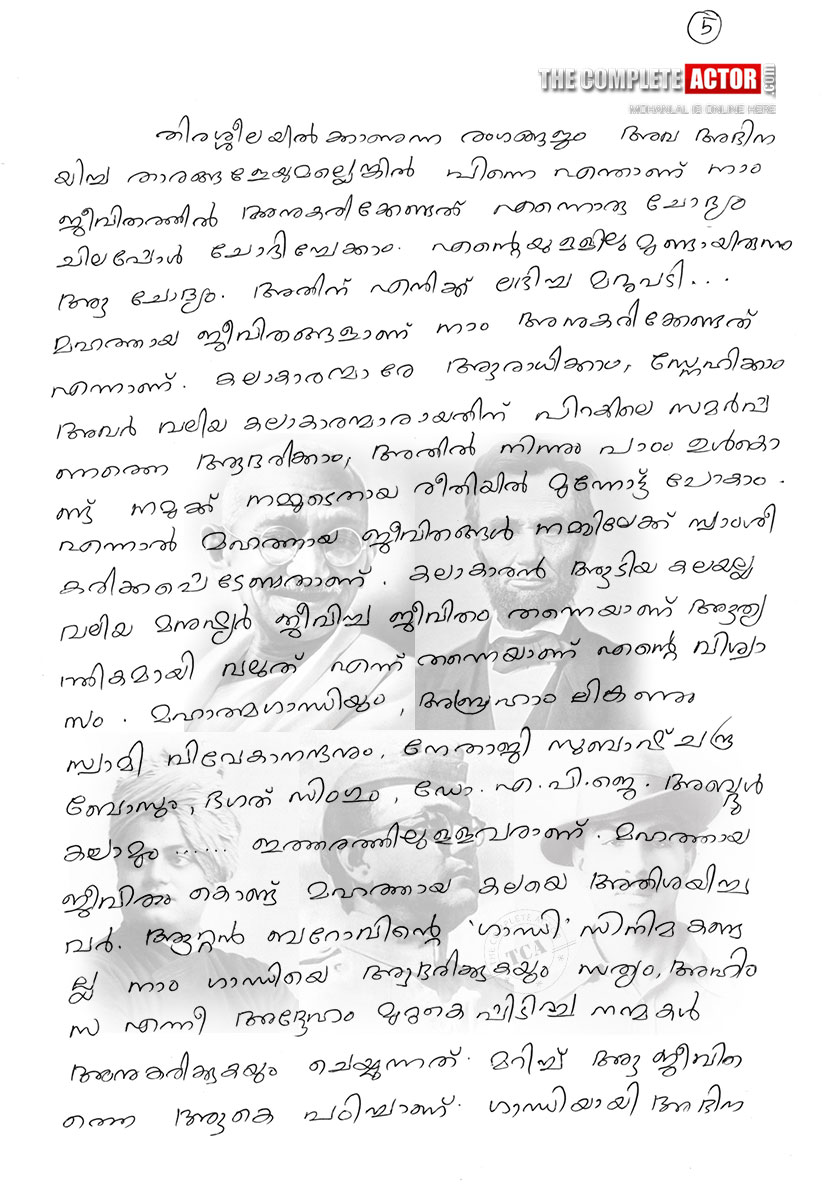 5
THE COMPLETE ACTOR .COM
MOHANLAL IS ONLINE HERE
തിരശ്ശീലയിൽ കാണുന്ന രംഗങ്ങളും അവ അഭിന
യിച്ച താരങ്ങളേയുമല്ലെങ്കിൽ പിന്നെ എന്താണ് നാം
ജീവിതത്തിൽ അനുകരിക്കേണ്ടത് എന്നൊരു ചോദ്യം
ചിലപ്പോൾ ചോദിച്ചേക്കാം. എന്റെയുള്ളിലുമുണ്ടായിരുന്നു
ആ ചോദ്യം. അതിന് എനിക്ക് ലഭിച്ച മറുപടി...
മഹത്തായ ജീവിതങ്ങളാണ് നാം അനുകരിക്കേണ്ടത്
എന്നാണ്. കലാകാരന്മാരേ ആരാധിക്കാം, സ്നേഹിക്കാം
അവർ വലിയ കലാകാരന്മാരായതിന് പിറകിലെ സമർപ്പ
ണത്തെ ആദരിക്കാം, അതിൽ നിന്നും പാഠം ഉൾകൊ
ണ്ട് നമുക്ക് നമ്മുടെതായ രീതിയിൽ മുന്നോട്ട് പോകാം.
എന്നാൽ മഹത്തായ ജീവിതങ്ങൾ നമ്മിലേക്ക് സ്വാംശീ
കരിക്കപ്പെടേണ്ടതാണ്. കലാകാരൻ ആടിയ കലയല്ല
വലിയ മനുഷ്യർ ജീവിച്ച ജീവിതം തന്നെയാണ് ആത്യ
ന്തികമായി വലുത് എന്ന് തന്നെയാണ് എന്റെ വിശ്വാ
സം. മഹാത്മഗാന്ധിയും, അബ്രഹാം ലിങ്കണും
സ്വാമി വിവേകാനന്ദനും, നേതാജി സുബാഷ് ചന്ദ്ര
ബോസും, ഭഗത് സിംഗും, ഡോ. എ.പി.ജെ. അബ്ദുൾ
കലാമും ...... ഇത്തരത്തിലുള്ളവരാണ്. മഹത്തായ
ജീവിതം കൊണ്ട് മഹത്തായ കലയെ അതിശയിച്ച
വർ. ആറ്റൻ ബറോവിന്റെ 'ഗാന്ധി' സിനിമ കണ്ട
ല്ല നാം ഗാന്ധിയെ ആദരിക്കുകയും സത്യം, അഹിം
സ എന്നീ അദ്ദേഹം മുറുകെപിടിച്ച നന്മകൾ
അനുകരിക്കുകയും ചെയ്യുന്നത്. മറിച്ച് ആ ജീവിത
ത്തെ ആകെ പഠിച്ചാണ്. ഗാന്ധിയായി അഭിന
TCA